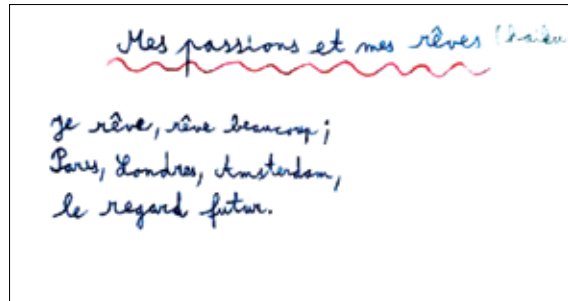 Mes passions et mes rêves (haïku
Je rêve, rêve beaucoup ;
Paris, Londres, Amsterdam,
le regard futur.